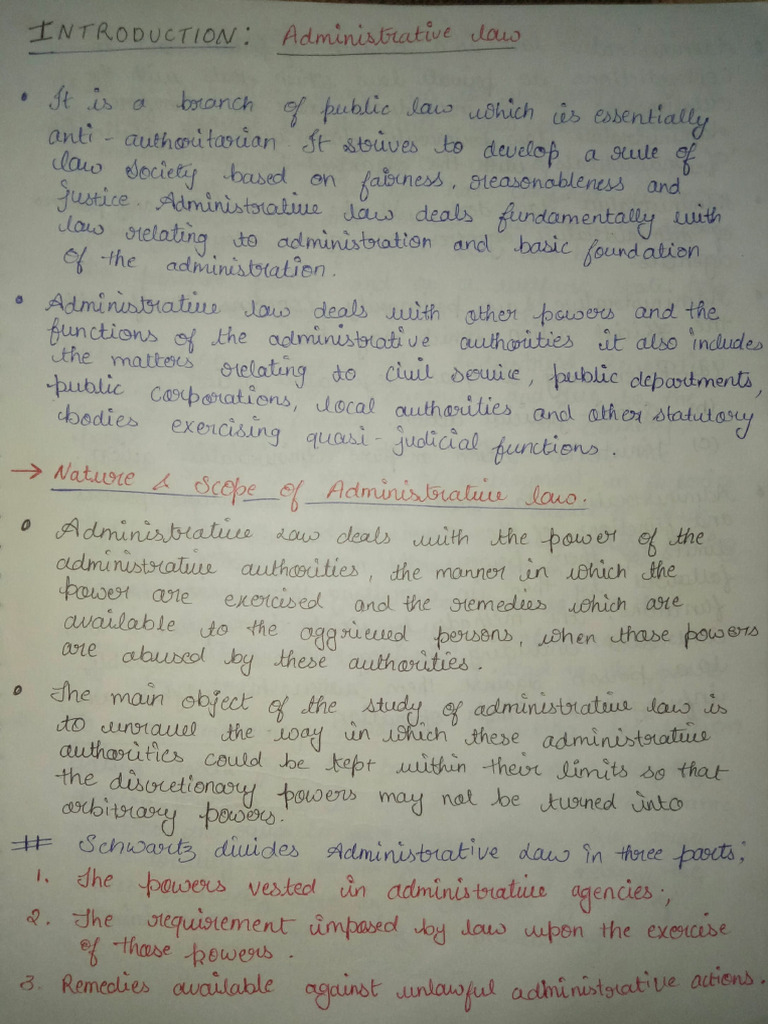 INTRODUCTION: Administrative law
• It is a branch of public law which is essentially
anti-authoritarian. It strives to develop a rule of
law society based on fairness, reasonableness and
justice. Administrative law deals fundamentally with
law relating to administration and basic foundation
of the administration.
• Administrative law deals with other powers and the
functions of the administrative authorities it also includes
the matters relating to civil service, public departments,
public corporations, local authorities and other statutory
bodies exercising quasi-judicial functions.
→ Nature & Scope of Administrative law.
• Administrative Law deals with the power of the
administrative authorities, the manner in which the
power are exercised and the remedies which are
available to the aggrieved persons, when those powers
are abused by these authorities.
• The main object of the study of administrative law is
to unravel the way in which these administrative
authorities could be kept within their limits so that
the discretionary powers may not be turned into
arbitrary powers.
# Schwartz divides Administrative Law in three parts;
1. The powers vested in administrative agencies;
2. The requirement imposed by law upon the exercise
of those powers.
3. Remedies available against unlawful administrative actions.